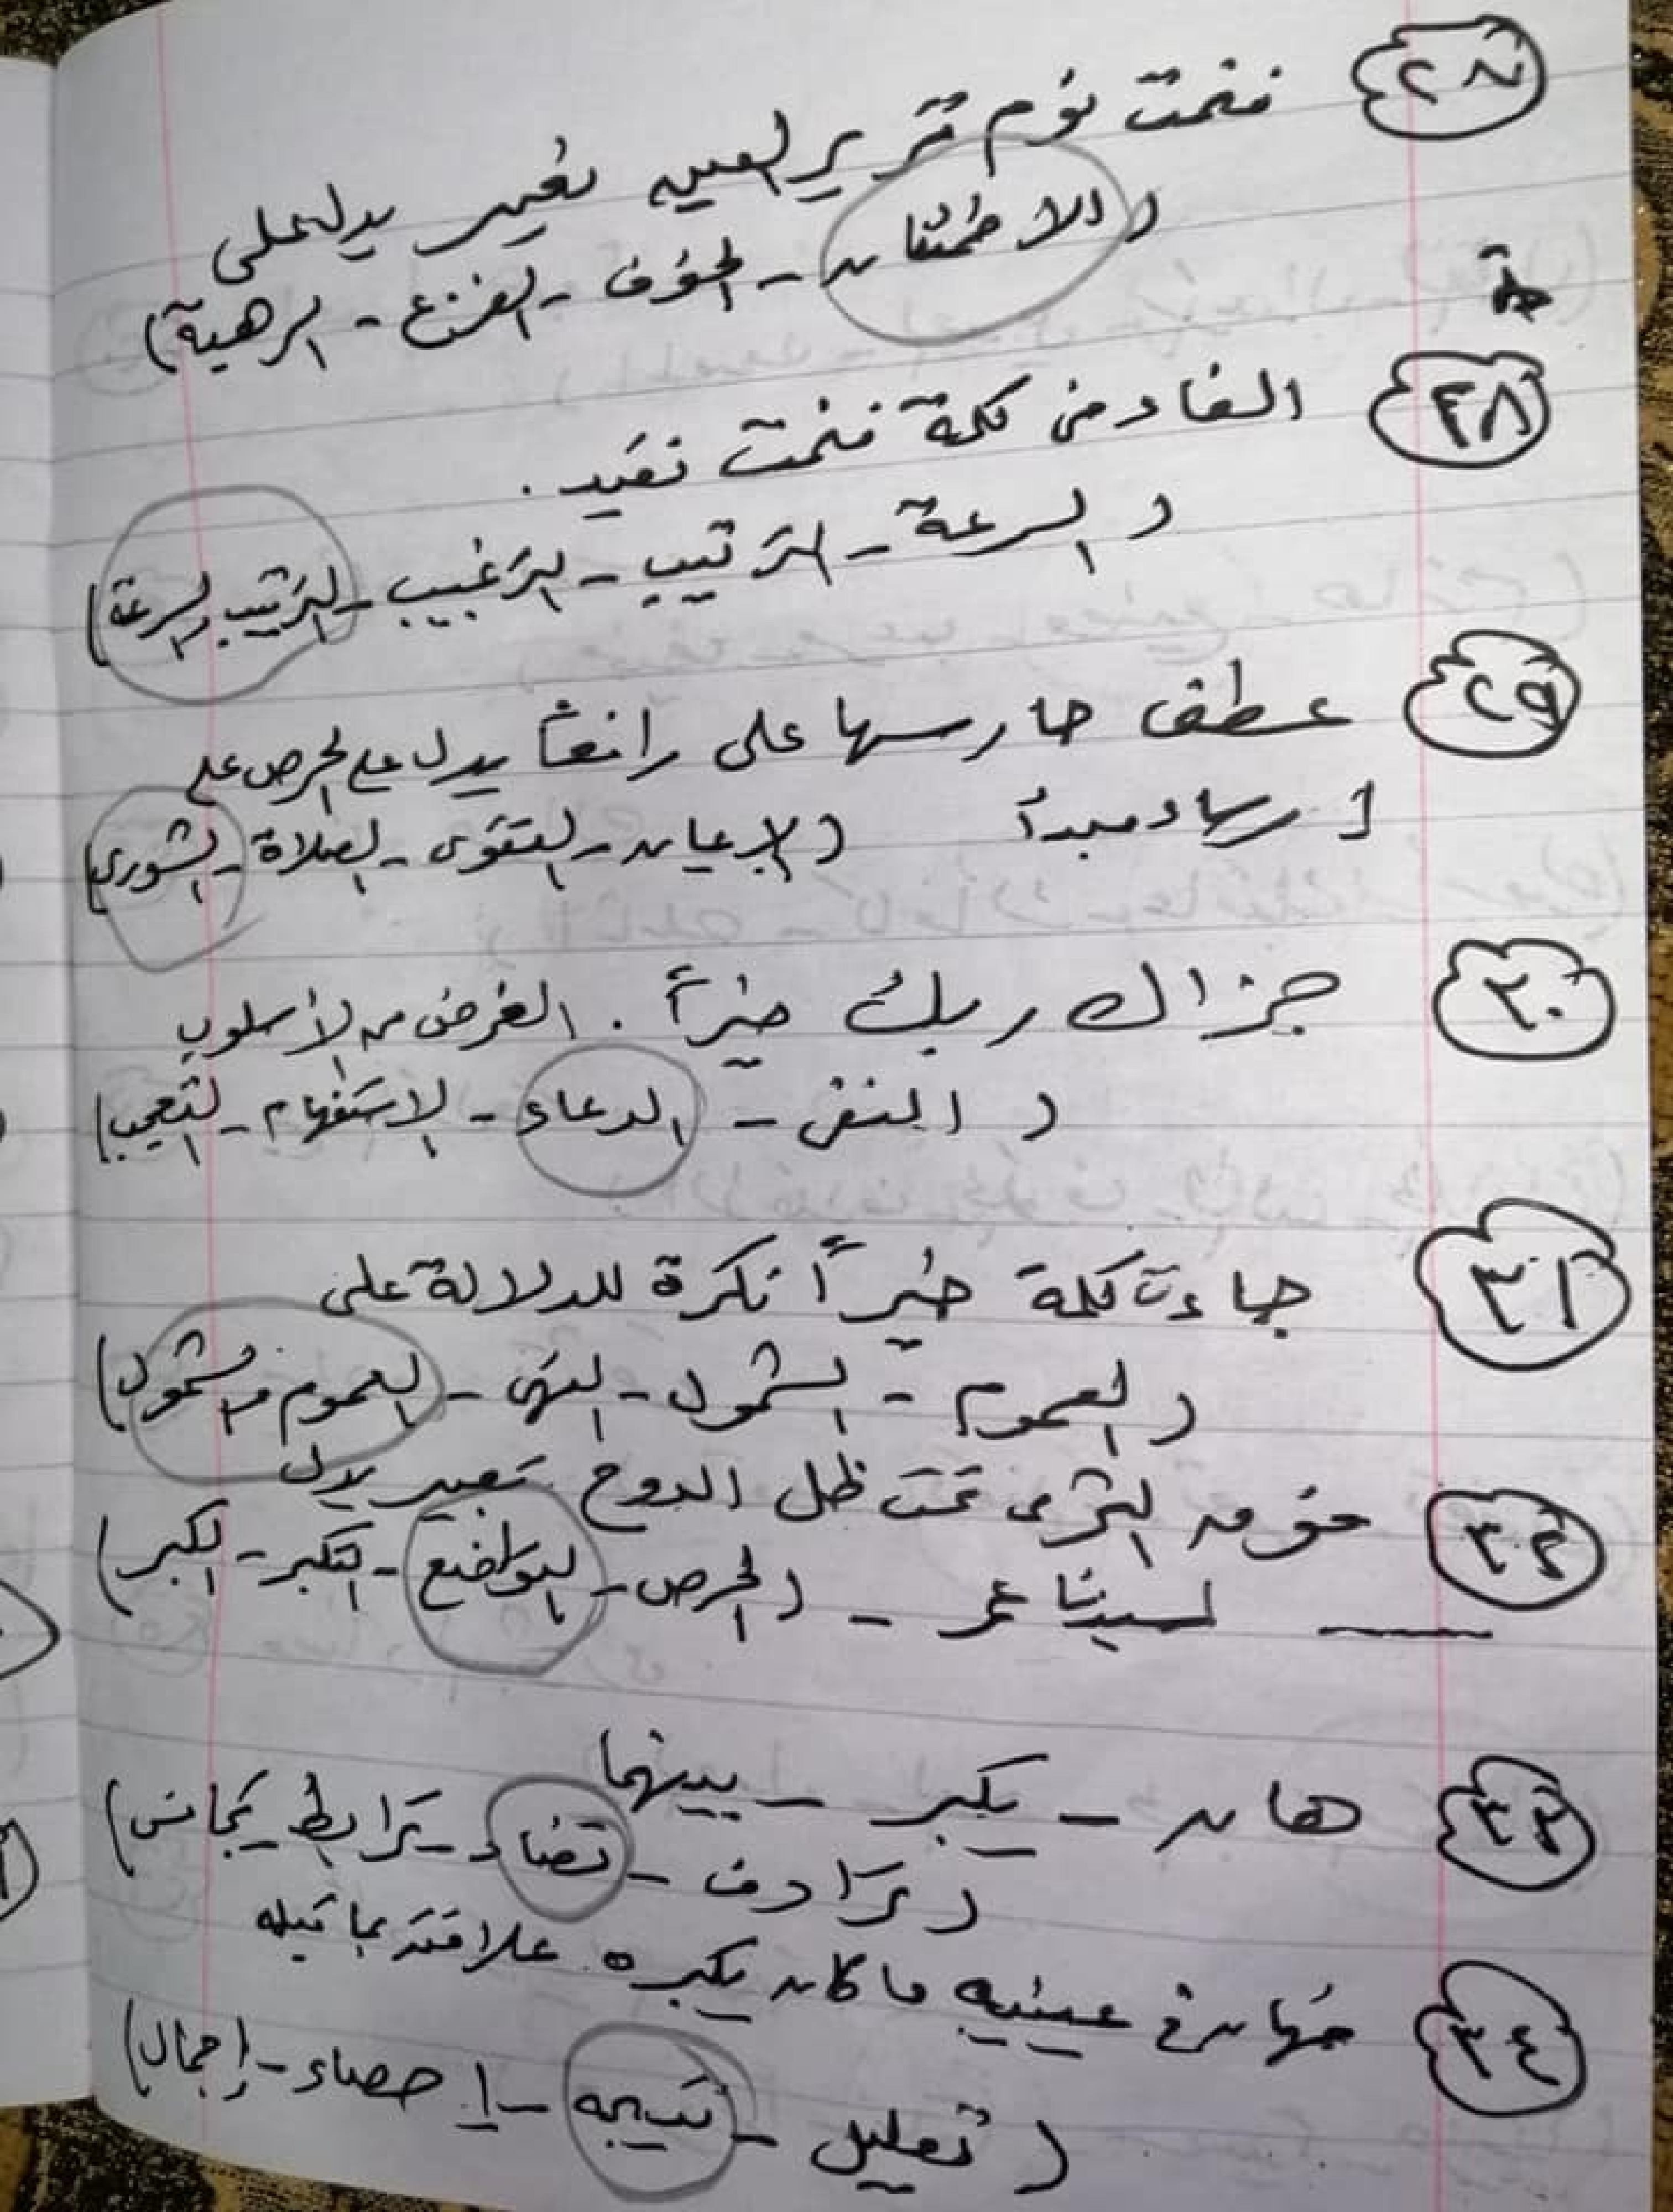 ٢٨ فنمت نوم قرير العين تعبير يدل على
(الاطمئنان - الخوف - الفزع - الرهبة)
٢٨ الفاء فى كلمة فنمت تفيد .
(السرعة - الترتيب - الترغيب - الترتيب والسرعة)
٢٩ عطف حارسها على رافعاً يدل على الحرص على
إرساء مبدأ (الإيمان - التقوى - الصلاة - الشورى)
٣٠ جزاك ربك خيراً . الغرض من الأسلوب
(النفى - الدعاء - الاستفهام - التعجب)
٣١ جاءت كلمة خيراً نكرة للدلالة على
(العموم - الشمول - النهى - العموم والشمول)
٣٢ فوق الثرى تحت ظل الدوح تعبير يدل
لسيدنا عمر - (الحرص - التواضع - التكبر - الكبر)
٣٣ هان - يكبر - بينهما
(ترادف - تضاد - ترابط - تجانس)
٣٤ فهان فى عينيه ما كان يكبره علاقته بما قبله
(تعليل - نتيجة - إحصاء - إجمال)